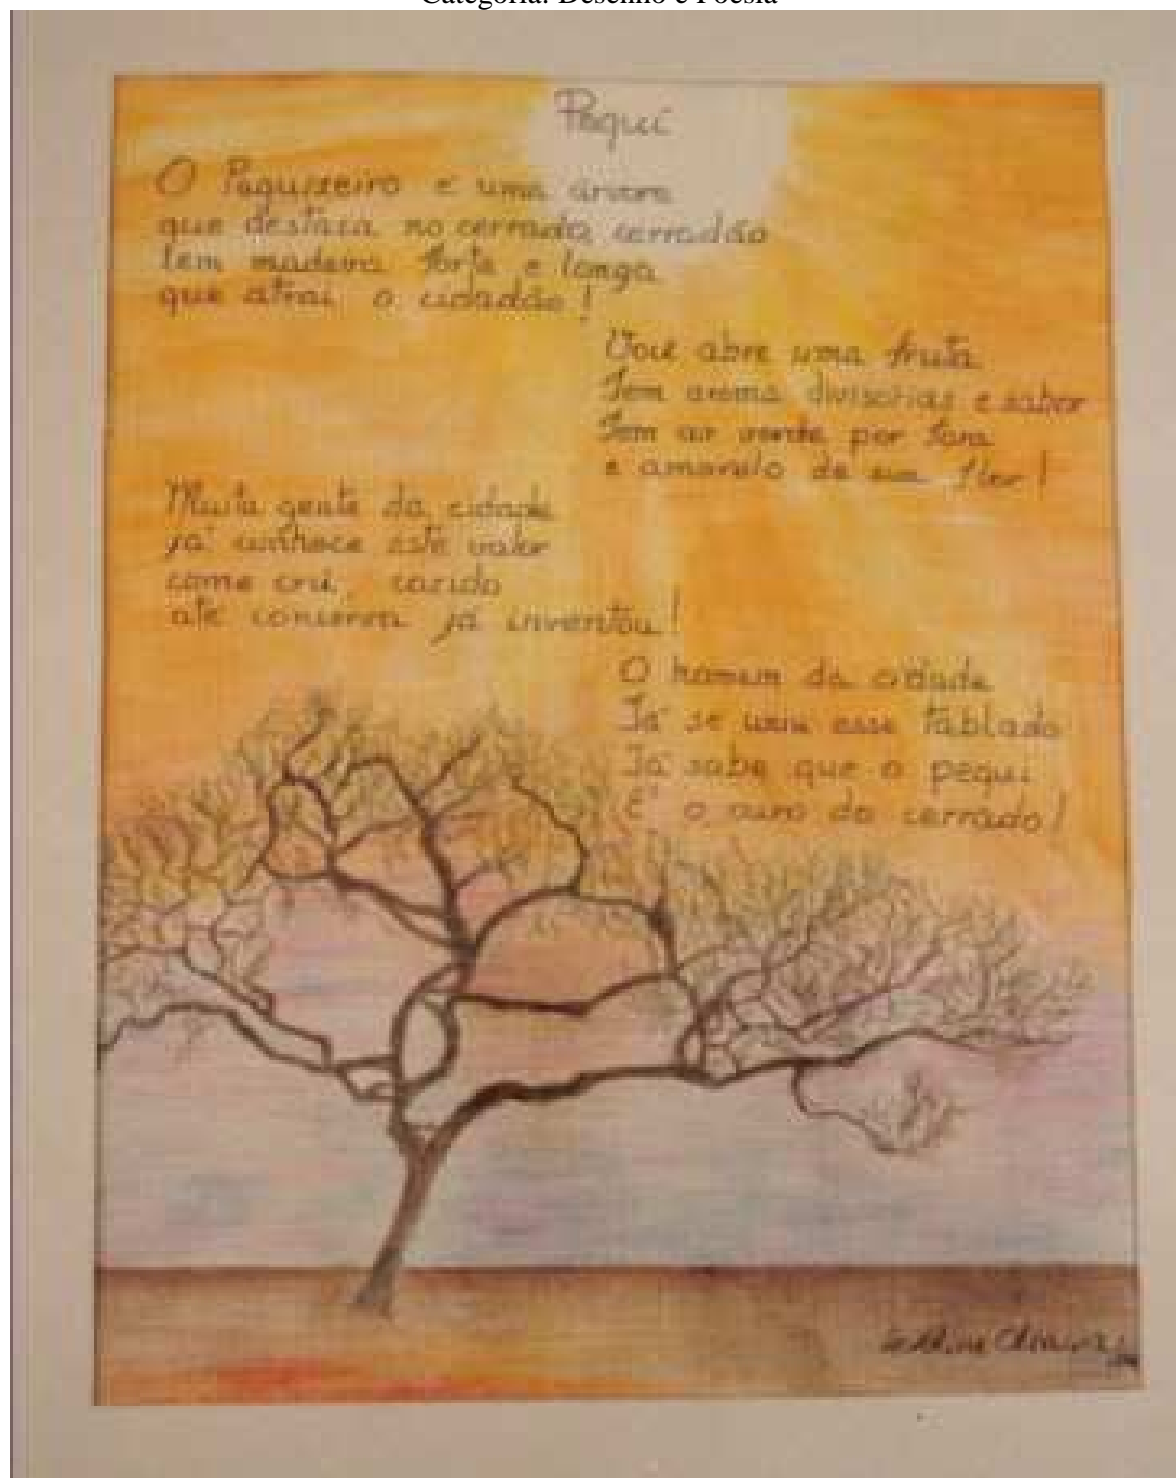 Categoria: Desenho e Poesia
Pequi
O Pequizeiro é uma árvore
que destaca no cerrado, cerradão
tem madeira forte e longa
que atrai o cidadão!
Você abre uma fruta
Tem aroma divisórias e sabor
Tem cor verde por fora
e amarelo de sua flor!
Muita gente da cidade
já conhece este valor
come crú, cozido
até conserva já inventou!
O homem da cidade
Já se uniu esse tablado
Já sabe que o pequi
É o ouro do cerrado!